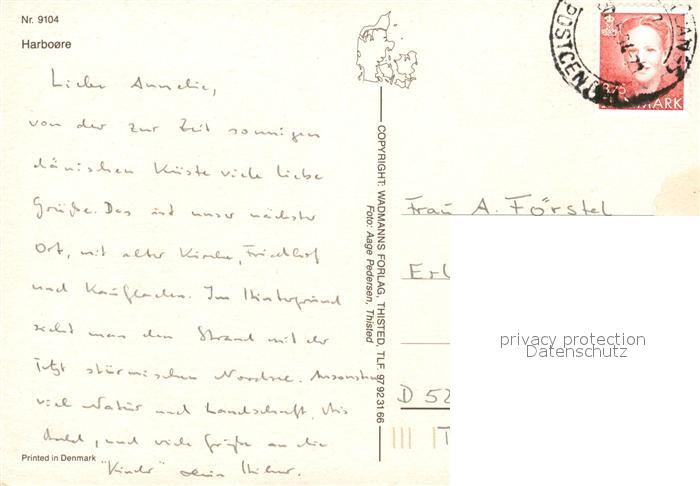 Nr. 9104
Harboøre
Liebe Annelie,
von der zur Zeit sonnigen
dänischen Küste viele liebe
Grüße. Das ist unser nächster
Ort, mit alter Kirche, Friedhof
und Kaufladen. Im Hintergrund
sieht man den Strand mit der
jetzt stürmischen Nordsee. Ansonsten
viel Natur und Landschaft. Bis
bald, und viele Grüße an die
"Kinder" dein
Printed in Denmark
COPYRIGHT: WADMANNS FORLAG, THISTED, TLF. 97 92 31 66
Foto: Aage Pedersen, Thisted
POSTCEN
3.75
DANMARK
Frau A. Förstel
Erl
D 52
privacy protection
Datenschutz